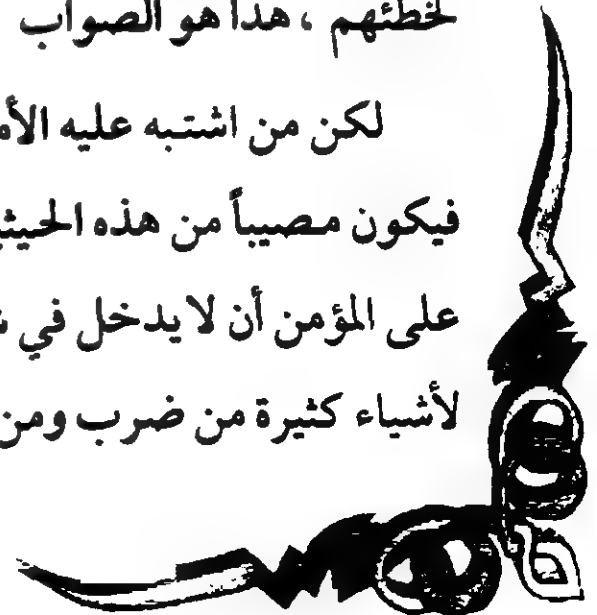 لخطئهم ، هذا هو الصواب
لكن من اشتبه عليه
فيكون مصيباً من هذه
على المؤمن أن لا يدخل في
لأشياء كثيرة من ضرب ومن